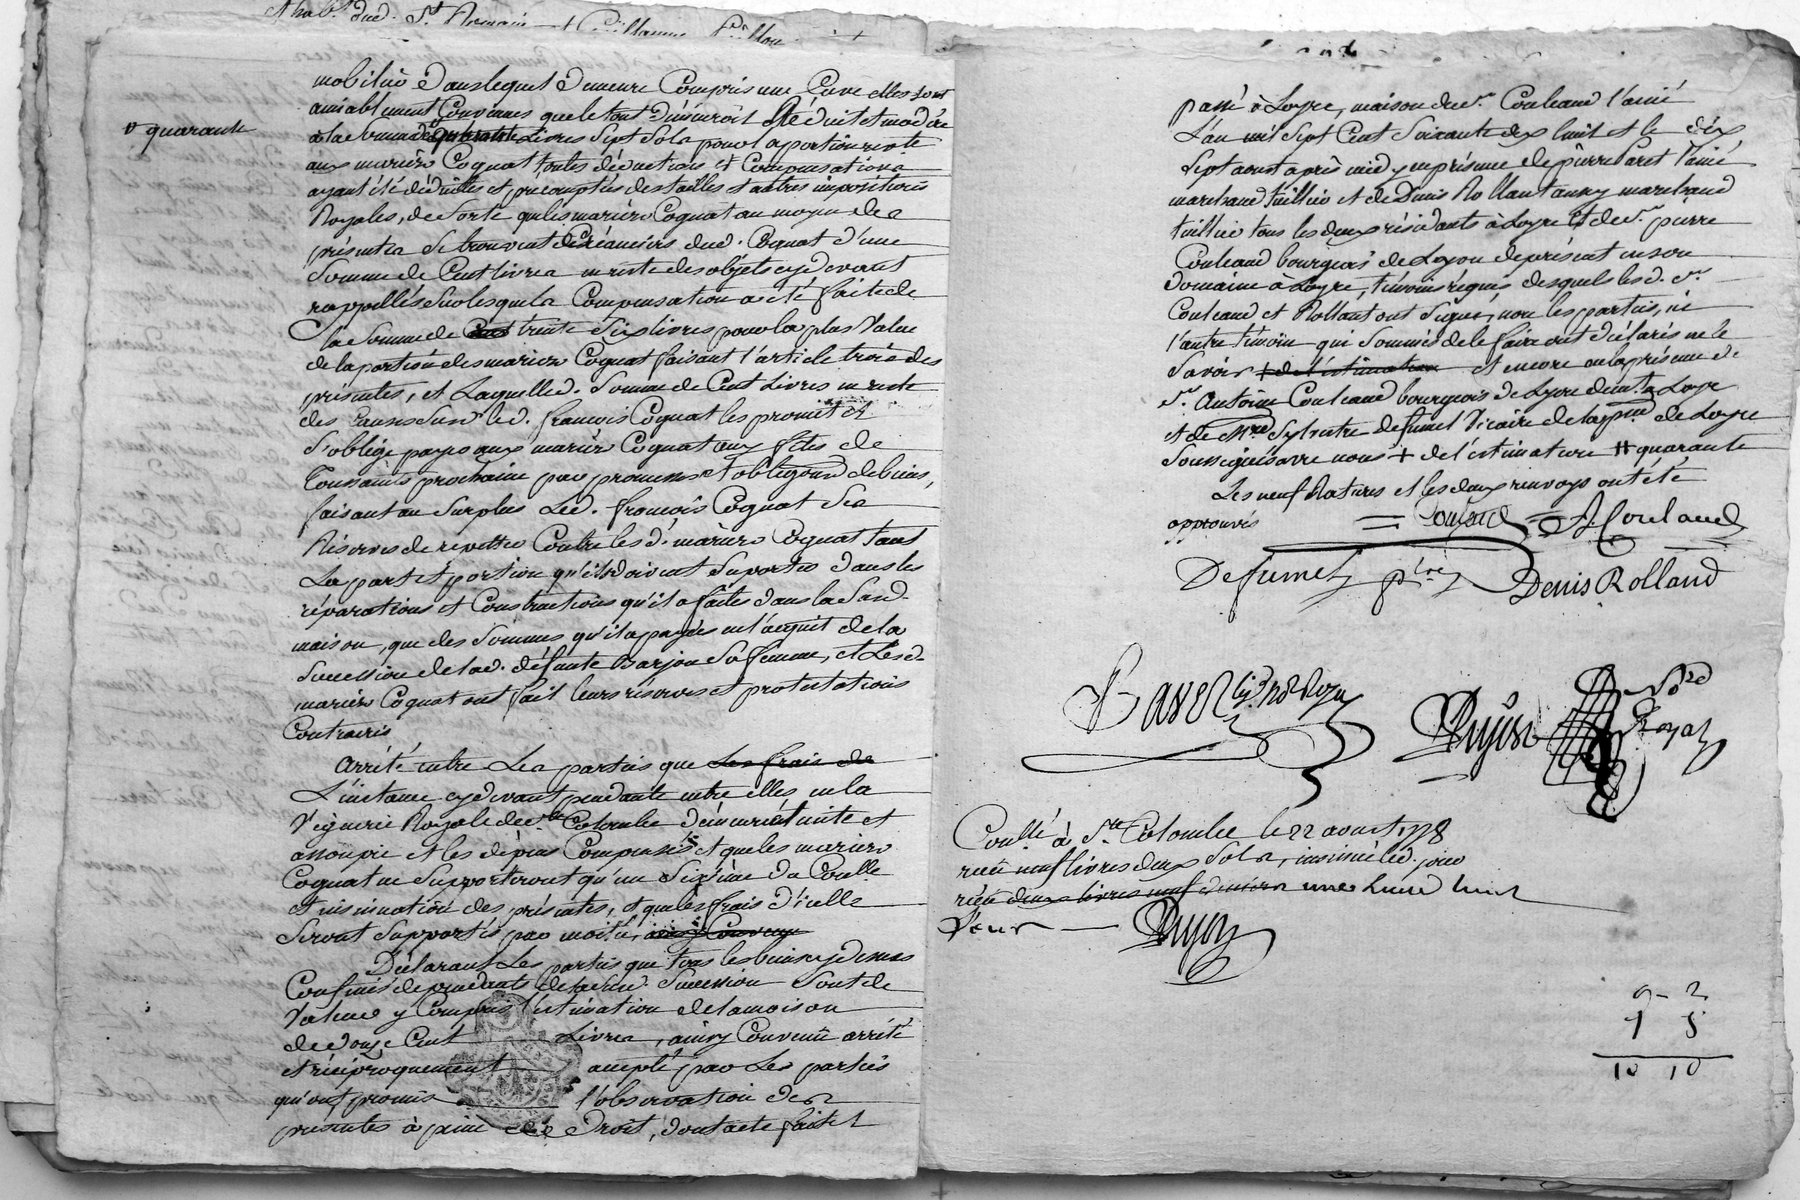 mobilier dans lequel demeure Compris une Cuve elles sont
amiablement Convenues que le tout demeuroit Réduit et modéré
# quarante
à la Somme de Livres Sept Sols pour la portion reste
aux mariés Coquat toutes déductions et Compensations
ayant été déduittes et precomptées des tailles et autres impositions
Royales, de Sorte que les mariés Coquat au moyen des
présentes Se trouvent Créanciers dud. Coquat d'une
Somme de Cent livres en reste des objets cy devant
rappellés Sur lesquels Compensation a été faite de
la Somme de trente Six livres pour la plus Value
de la portion des mariés Coquat faisant l'article trois des
présentes, et Laquelle d. Somme de Cent Livres en reste
des Causes Susd. led. françois Coquat les promet et
S'oblige payer aux mariés Coquat aux fêtes de
Toussaints prochaine par promesse et obligaon de biens,
faisant au Surplus Led. françois Coquat Ses
Réserves de répetter Contre les d. mariés Coquat tant
La part et portion qu'ils doivent Suporter dans les
réparations et Constructions qu'il a faites dans la Susd.
maison, que des Sommes qu'il a payées en l'acquit de la
Succession de lad. défunte Barjon Sa femme, et Lesd.
mariés Coquat ont fait leurs réserves et protestations
Contraires
Arrêté entre Les parties que les frais de
L'instance cy devant pendante entre elles en la
Viguerie Royale de Ste Colombe demeure éteinte et
assoupie et les dépens Compensés et que les mariés
Coquat ne Supporteront qu'un Sixième du Conlle
et insinuation des présentes, et que les frais d'icelle
Seront Supportés par moitié,
Déclarant Les parties que tous les biens cy dessus
Confinés dépendants de la Sud. Succession Sont de
Valeur y Compris l'estimation de la maison
de Douze Cent Livres, ainsy Convenu arrêté
et réciproquement accepté par Les parties
qui ont promis l'observation des
présentes à peine de Droit, dont acte fait et
passé à Loyre, maison du sr. Couland l'ainé
L'an mil Sept Cent Soixante dix huit et le dix
Sept aoust après midy en présence de pierre Paret l'ainé
marchand tuillier et de Denis Rolland aussy marchand
tuillier tous les deux résidants à Loyre et de sr. pierre
Couland bourgeois de Lyon de présent en son
Domaine à Loyre, témoins réquis desquels lesd. srs
Couland et Rolland ont Signé, non les parties, ni
l'autre témoin qui Sommés de le faire ont déclarés ne le
Savoir + de l'estimation et encore en la présence de
sr. Antoine Couland bourgeois de Lyon demt à Loyre
et de Mre Sylvestre Defumel Vicaire de la psse de Loyre
Soussignés avec nous + de l'estimateur # quarante
Les neuf Ratures et les deux renvoys ont été
approuvés
Couland A. Couland
Defumel ptre Denis Rolland
Puyon Nore
Royal
Conllé à Ste Colombe le 22 aoust 1778
reçû neuf livres deux Sols, insinué led. jour
reçû deux livres neuf deniers une livre huit
Sous Puyon
9 - 2
1 8
10 10